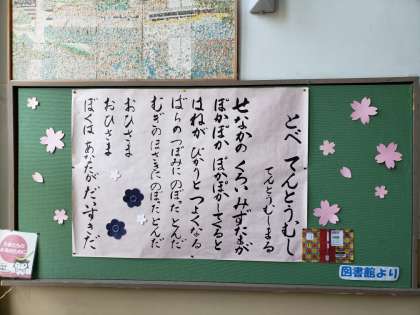 とべ てんとうむし
てんとうむしまる
せなかの くろい みずたまが
ぽかぽか ぽかぽかしてくると
はねが ぴかりと つよくなる
ばらの つぼみに のぼった とんだ
むぎの ほさきに のぼった とんだ
おひさま
おひさま
ぼくは あなたが だいすきだ
図書館より